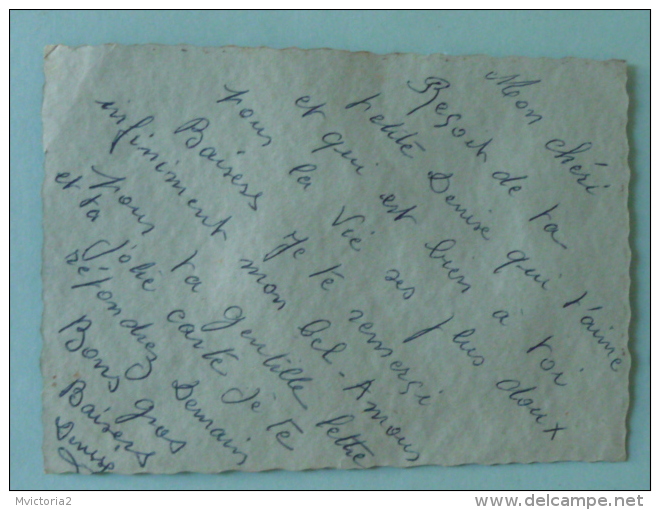 Mon chéri
Reçoit de ta
petite Denise qui t'aime
et qui est bien a toi
pour la Vie ses plus doux
Baisers Je te remerçi
infiniment mon bel-Amour
pour ta gentille lettre
et ta jolie carte je te
répondrez Demain
Bons gros
Baisers
Denise
Mvictoria2
delcampe.net